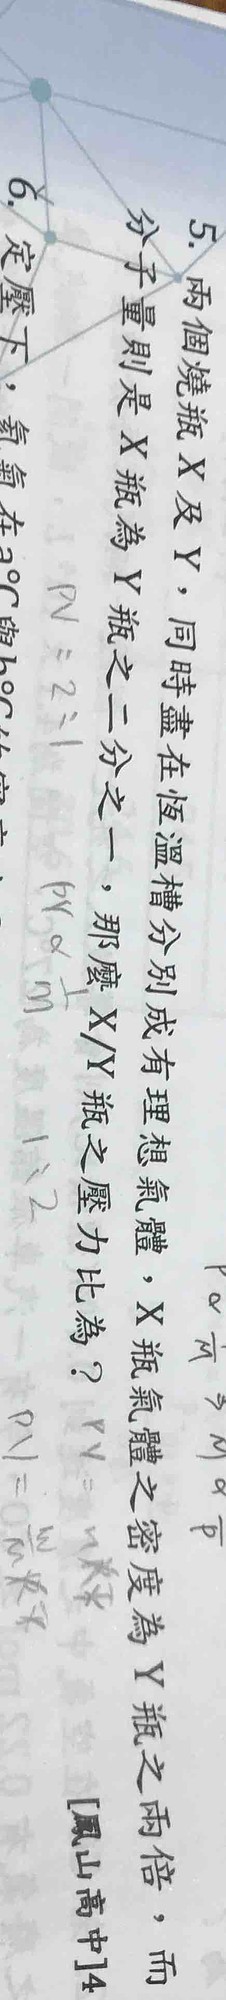 P α 1/M → M α 1/P
5. 兩個燒瓶 X 及 Y，同時盡在恆溫槽分別成有理想氣體，X 瓶氣體之密度為 Y 瓶之兩倍，而
分子量則是 X 瓶為 Y 瓶之二分之一，那麼 X/Y 瓶之壓力比為？ PV = nRT [鳳山高中]4
PV = 2:1 PV α 1/M 1:2 PV = W/M RT
6. 定壓下，氦氣在a°C與b°C